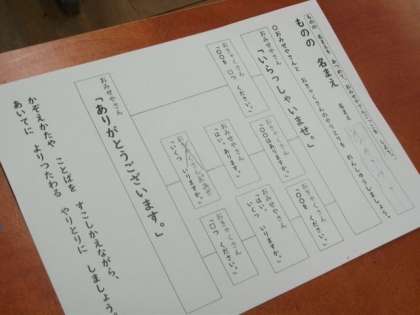 ものの 名まえ
おみせやさんと おきゃくさんのやりとりを れんしゅうしましょう。
○おみせやさん
「いらっしゃいませ。」
おきゃくさん
「○○を □つ ください。」
おきゃくさん
「○○を ください。」
おみせやさん
「○○は、
はい、あります。」
おみせやさん
「いくつ いりますか。」
おきゃくさん
「○○を ください。」
おみせやさん
「はい。
いくつ いりますか。」
おきゃくさん
「□つ ください。」
おみせやさん
「ありがとうございます。」
かぞえかたや ことばを すこしかえながら、
あいてに よりつたわる やりとりに しましょう。